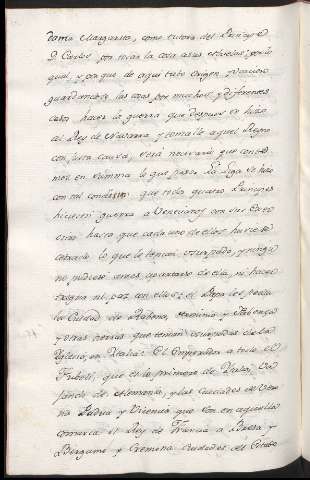 dama Margarita, como tutora del Principe
D. Carlos, por tocar la cosa a sus estados; por lo
qual, y porque de aqui tubo origen, y nacieron
guardandose las cosas por muchos, y diferentes
casos, hacer la guerra que despues se hizo
al Rey de Navarra y tomalle aquel Reyno
con justa causa, será necesario que conte-
mos en summa lo que pasó. La liga se hizo
con tal condicion que todos quatro Principes
hiciesen guerra a Venecianos con sus Exer-
citos hasta que cada uno de ellos huviese
cobrado lo que le tenian usurpado, y ningu-
no pudiese antes apartarse de ella, ni hacer
tregua ni paz con ellos: el Papa les pedia
la Ciudad de Rabena, Arminio y Fabencia
y otras tierras que tenian usurpadas de la
Yglesia, en Italia: El Emperador a todo el
Friboli, que es lo primero de Italia,
de Alemania, y las Ciudades de Vero-
na Padua y Vicencia que son en aquella
comarca: el Rey de Francia a Bressa y
Bergamo y Cremona Ciudades del Estado